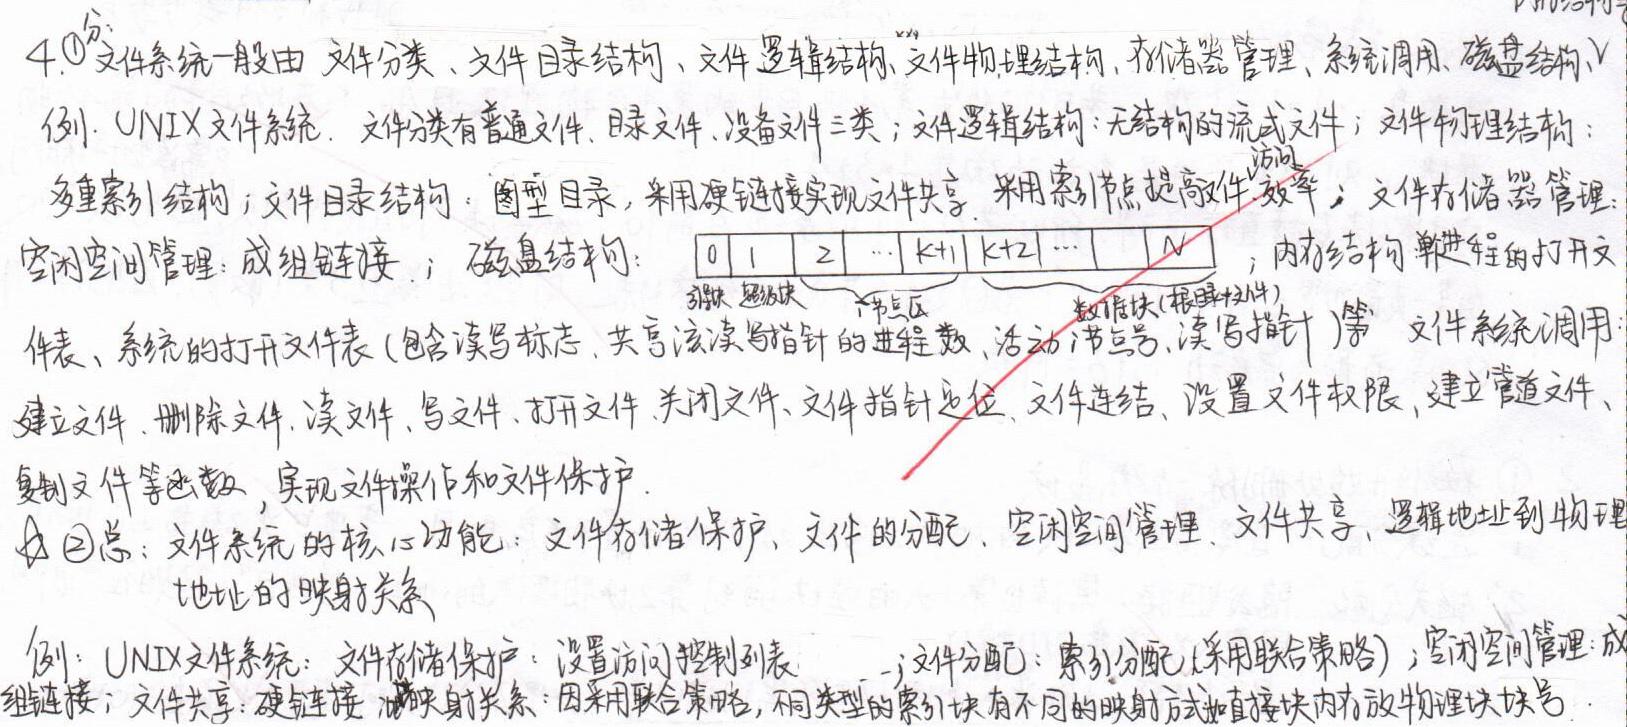 内存结构
4.①分:文件系统一般由 文件分类、文件目录结构、文件逻辑结构、文件物理结构、存储器管理、系统调用、磁盘结构、
例. UNIX文件系统. 文件分类有普通文件、目录文件、设备文件三类；文件逻辑结构：无结构的流式文件；文件物理结构：
多重索引结构；文件目录结构：图型目录，采用硬链接实现文件共享，采用索引节点提高文件访问效率；文件存储器管理：
空闲空间管理：成组链接；磁盘结构： 0 1 2 … k+1 k+2 … N ；内存结构 单进程的打开文
引导块 超级块 i节点区 数据块(根目录+文件)
件表、系统的打开文件表(包含读写标志、共享该读写指针的进程数、活动i节点号、读写指针)等 文件系统调用：
建立文件、删除文件、读文件、写文件、打开文件、关闭文件、文件指针定位、文件连结、设置文件权限、建立管道文件、
复制文件等函数，实现文件操作和文件保护.
②总：文件系统的核心功能：文件存储保护、文件的分配、空闲空间管理、文件共享、逻辑地址到物理
地址的映射关系
例：UNIX文件系统：文件存储保护：设置访问控制列表 ；文件分配：索引分配(采用联合策略)；空闲空间管理：成
组链接；文件共享：硬链接 映射关系：因采用联合策略，不同类型的索引块有不同的映射方式如直接块内存放物理块块号..